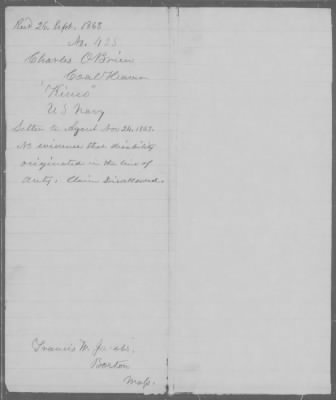 Recd. 26. Sept. 1863
No. 425
Charles O'Brien
Coal Heaver
"Kineo"
U S Navy
Letter to Agent Nov 24. 1863.
No evidence that disability
originated in the line of
duty. Claim Disallowed.
Francis W.
Boston
Mass.